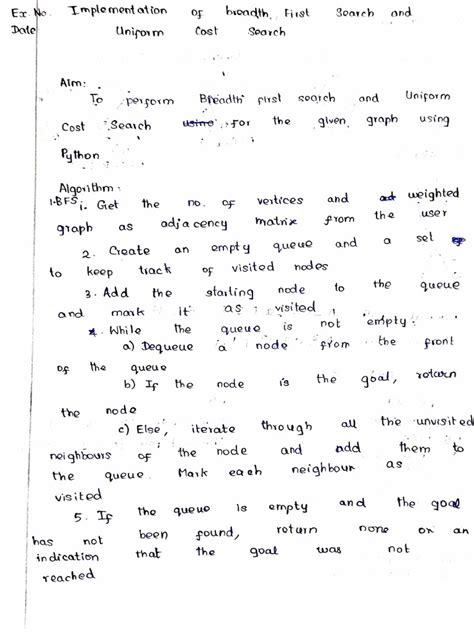 Ex. No. Implementation of breadth First Search and
Date Uniform Cost Search
Aim:
To perform Breadth first search and Uniform
Cost Search using for the given graph using
Python
Algorithm:
1.BFS 1. Get the no. of vertices and weighted
graph as adjacency matrix from the user
2. Create an empty queue and a set
to keep track of visited nodes
3. Add the starting node to the queue
and mark it as visited
4. While the queue is not empty:
a) Dequeue a node from the front
of the queue
b) If the node is the goal, return
the node
c) Else, iterate through all the unvisited
neighbours of the node and add them to
the queue. Mark each neighbour as
visited
5. If the queue is empty and the goal
has not been found, return none or an
indication that the goal was not
reached